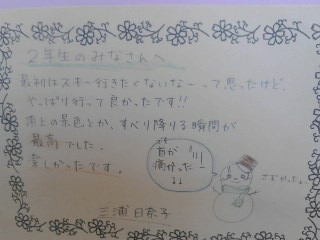 2年生のみなさんへ
最初はスキー行きたくないなーって思ったけど、
やっぱり行って良かったです!!
雨との景色とか、すべり降りる瞬間が
最高でした。
楽しかったです。
首が
痛かったー
さむかったょ。
三浦日奈子